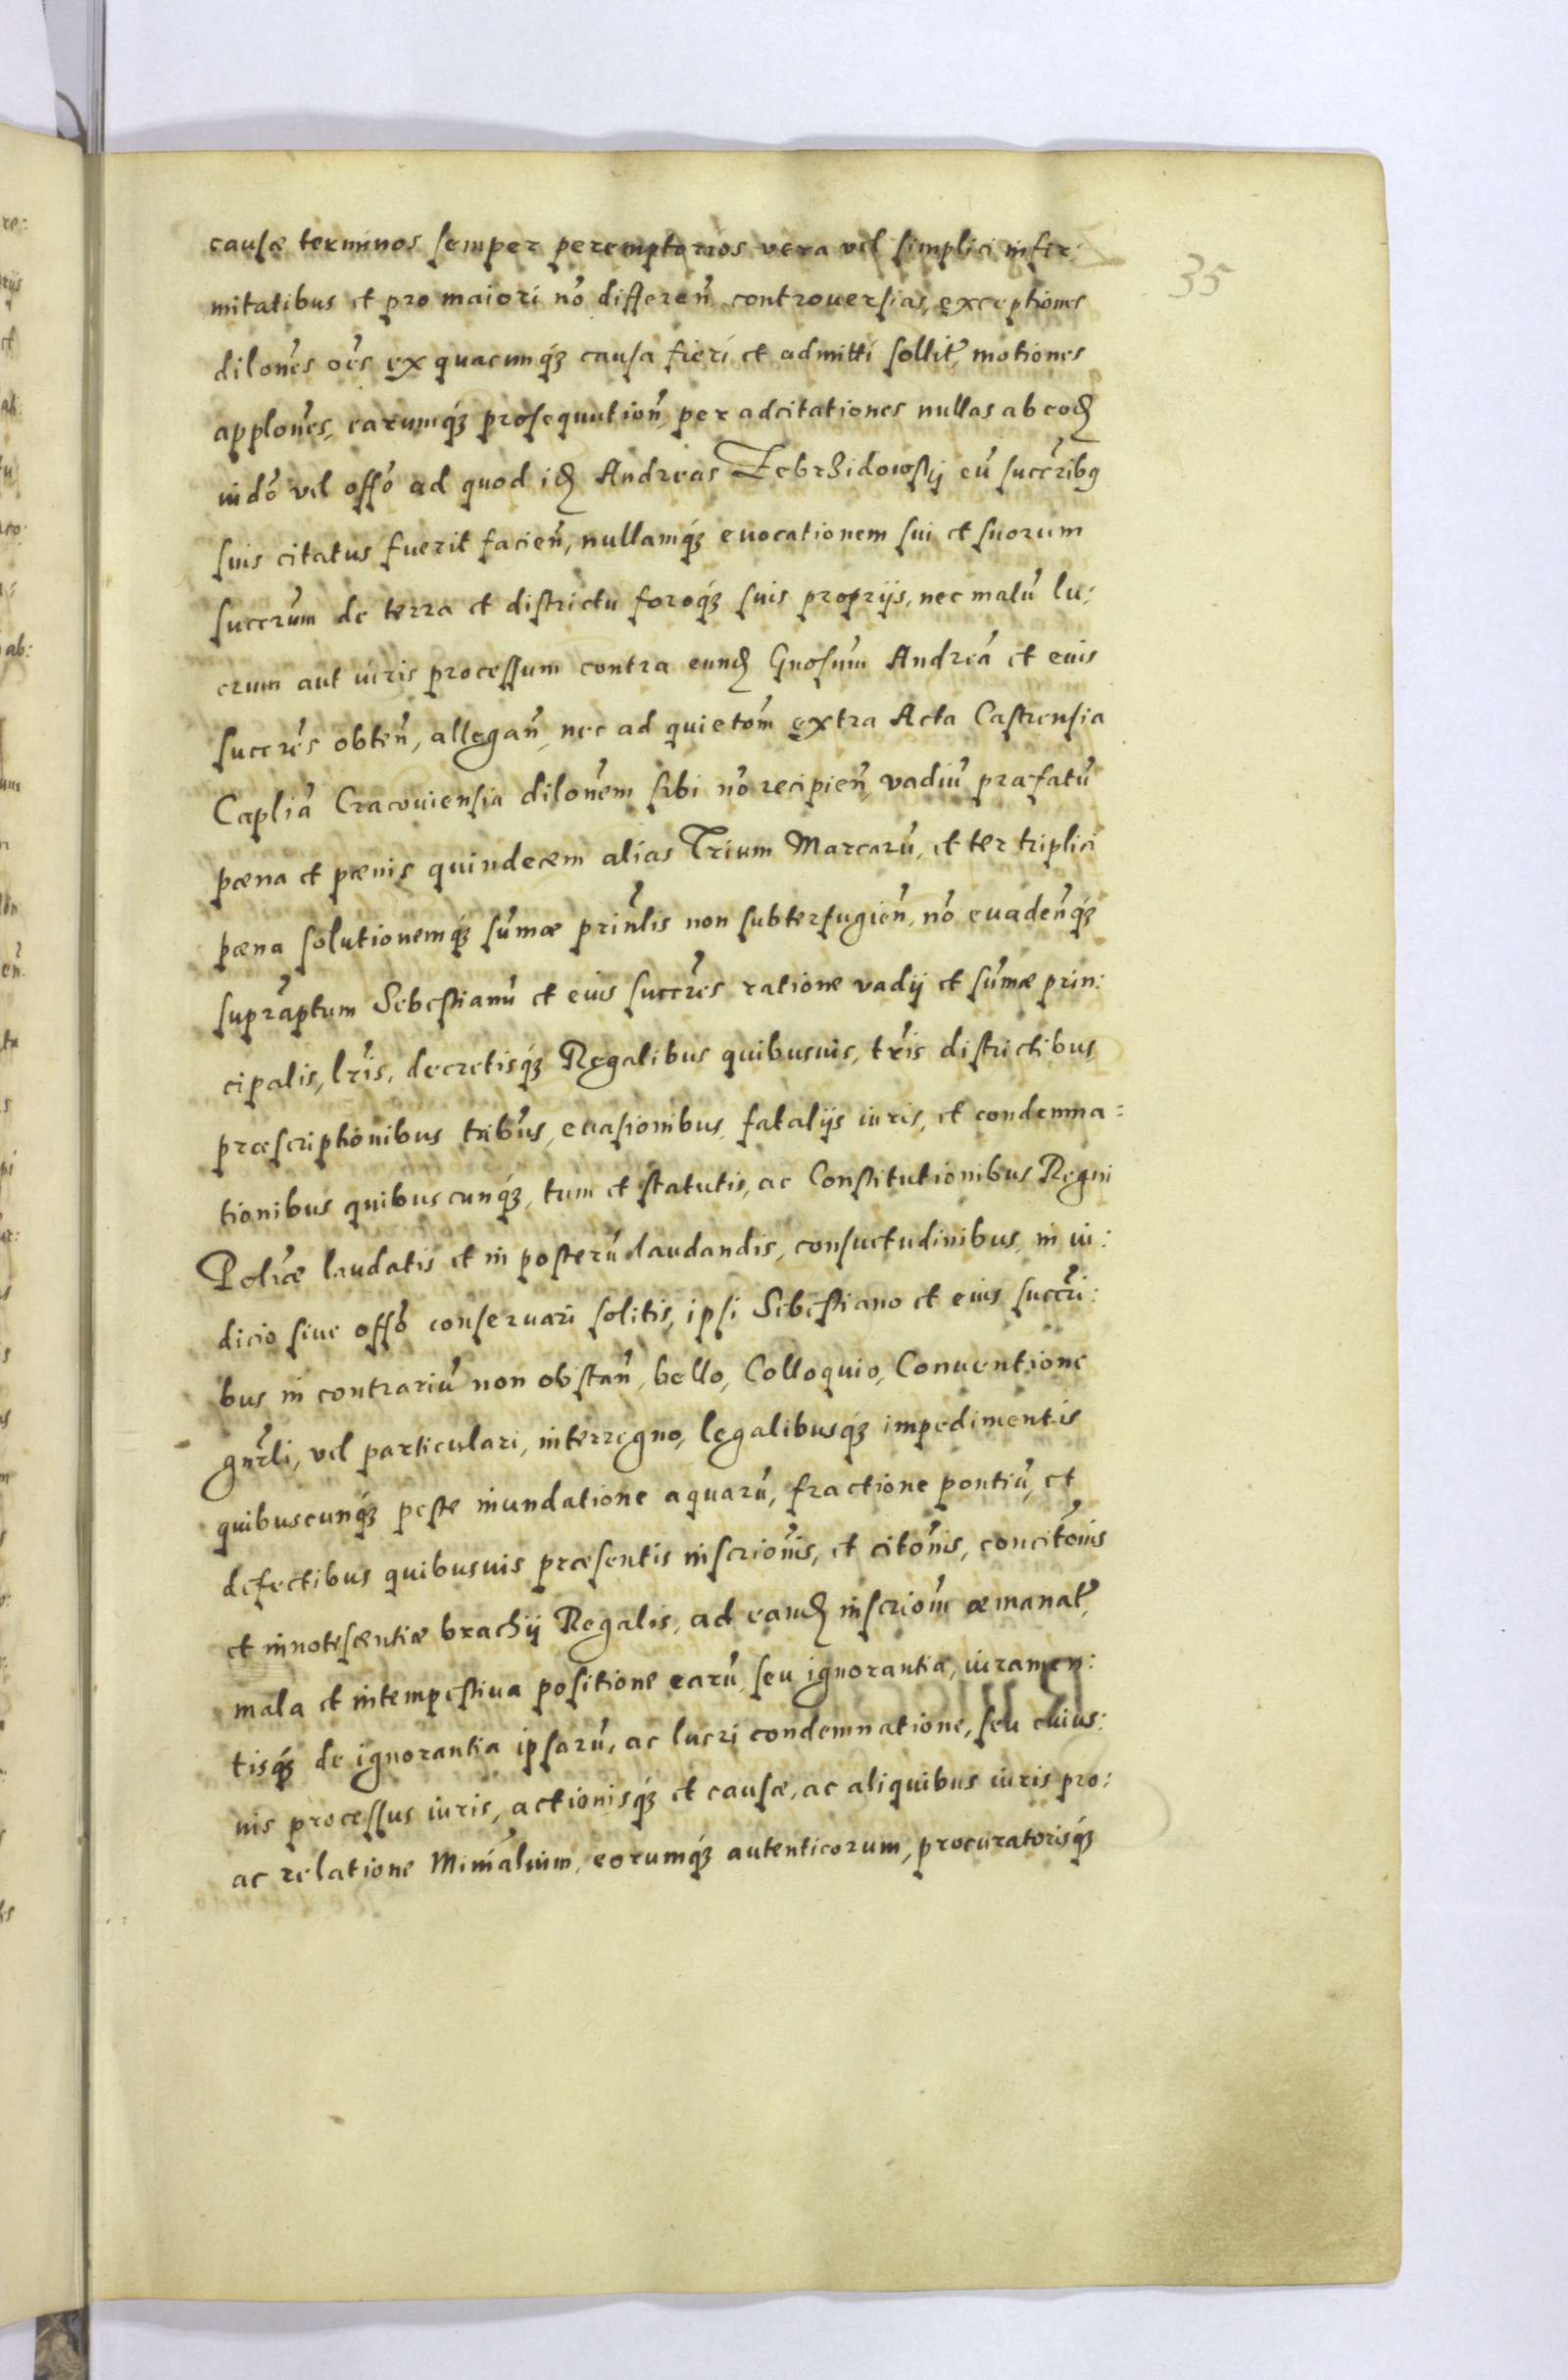 causæ terminos semper peremptorios vera vel simplici infir:
35
mitatibus et pro maiori nõ differeñ controuersias, exceptiones
dilones oẽs ex quacunq́ꝫ causa fieri et admitti sollit̃, motiones
applones, earumq́ꝫ prosequutioñ, per adcitationes nullas ab eod̃
iudõ vel offõ ad quod id̃ Andreas Zebrzidowskÿ cũ succr̃ibꝰ
suis citatus fuerit facieñ, nullamq́ꝫ euocationem sui et suorum
succr̃um de terra et districtu foroq́ꝫ suis proprijs, nec malũ lu:
crum aut iuris processum contra eund̃ Gnosũm Andreã et eius
succr̃es obteñ, allegañ, nec ad quietõm extra Acta Castrensia
Capliã Cracouiensia dilonem sibi nõ recipieñ, vadiũ præfatũ
pæna et pænis quindecem alias Trium Marcarũ, et ter triplici
pæna solutionemq́ꝫ sum̃æ prin̈lis non subterfugieñ, nõ euadeñq́ꝫ
supraptum Sebestianũ et eius succr̃es ratione vadij et sum̃æ prin:
cipalis, lr̃is, decretisq́ꝫ Regalibus quibusuis, tr̃is districtibus
præscriptionibus tribus, euasionibus, fatalijs iuris, et condemna=
tionibus quibuscunq́ꝫ, tum et statutis, ac Constitutionibus Regni
Poliæ laudatis et in posterũ laudandis, consuetudinibus, in iu:
dicio siue offõ conseruari solitis, ipsi Sebestiano et eius succr̃i:
bus in contrariũ non obstañ, bello, Colloquio, Conuentione
gnr̃li, vel particulari, interregno, legalibusq́ꝫ impedimentis
quibuscunq́ꝫ peste inundatione aquarũ, fractione pontiũ, et
defectibus quibusuis præsentis inscrionis, et citõnis, concitõnis
et innotescentiæ brachij Regalis, ad eand̃ inscriom æmanat̃,
mala et intempestiua positione earũ, seu ignorantia, iuramen:
tisq́ꝫ de ignorantia ipsarũ, ac lucri condemnatione, seu cuius:
uis processus iuris, actionisq́ꝫ et causæ, ac aliquibus iuris pro:
ac relatione Minãlium, eorumq́ꝫ autenticorum, procuratorisq́ꝫ